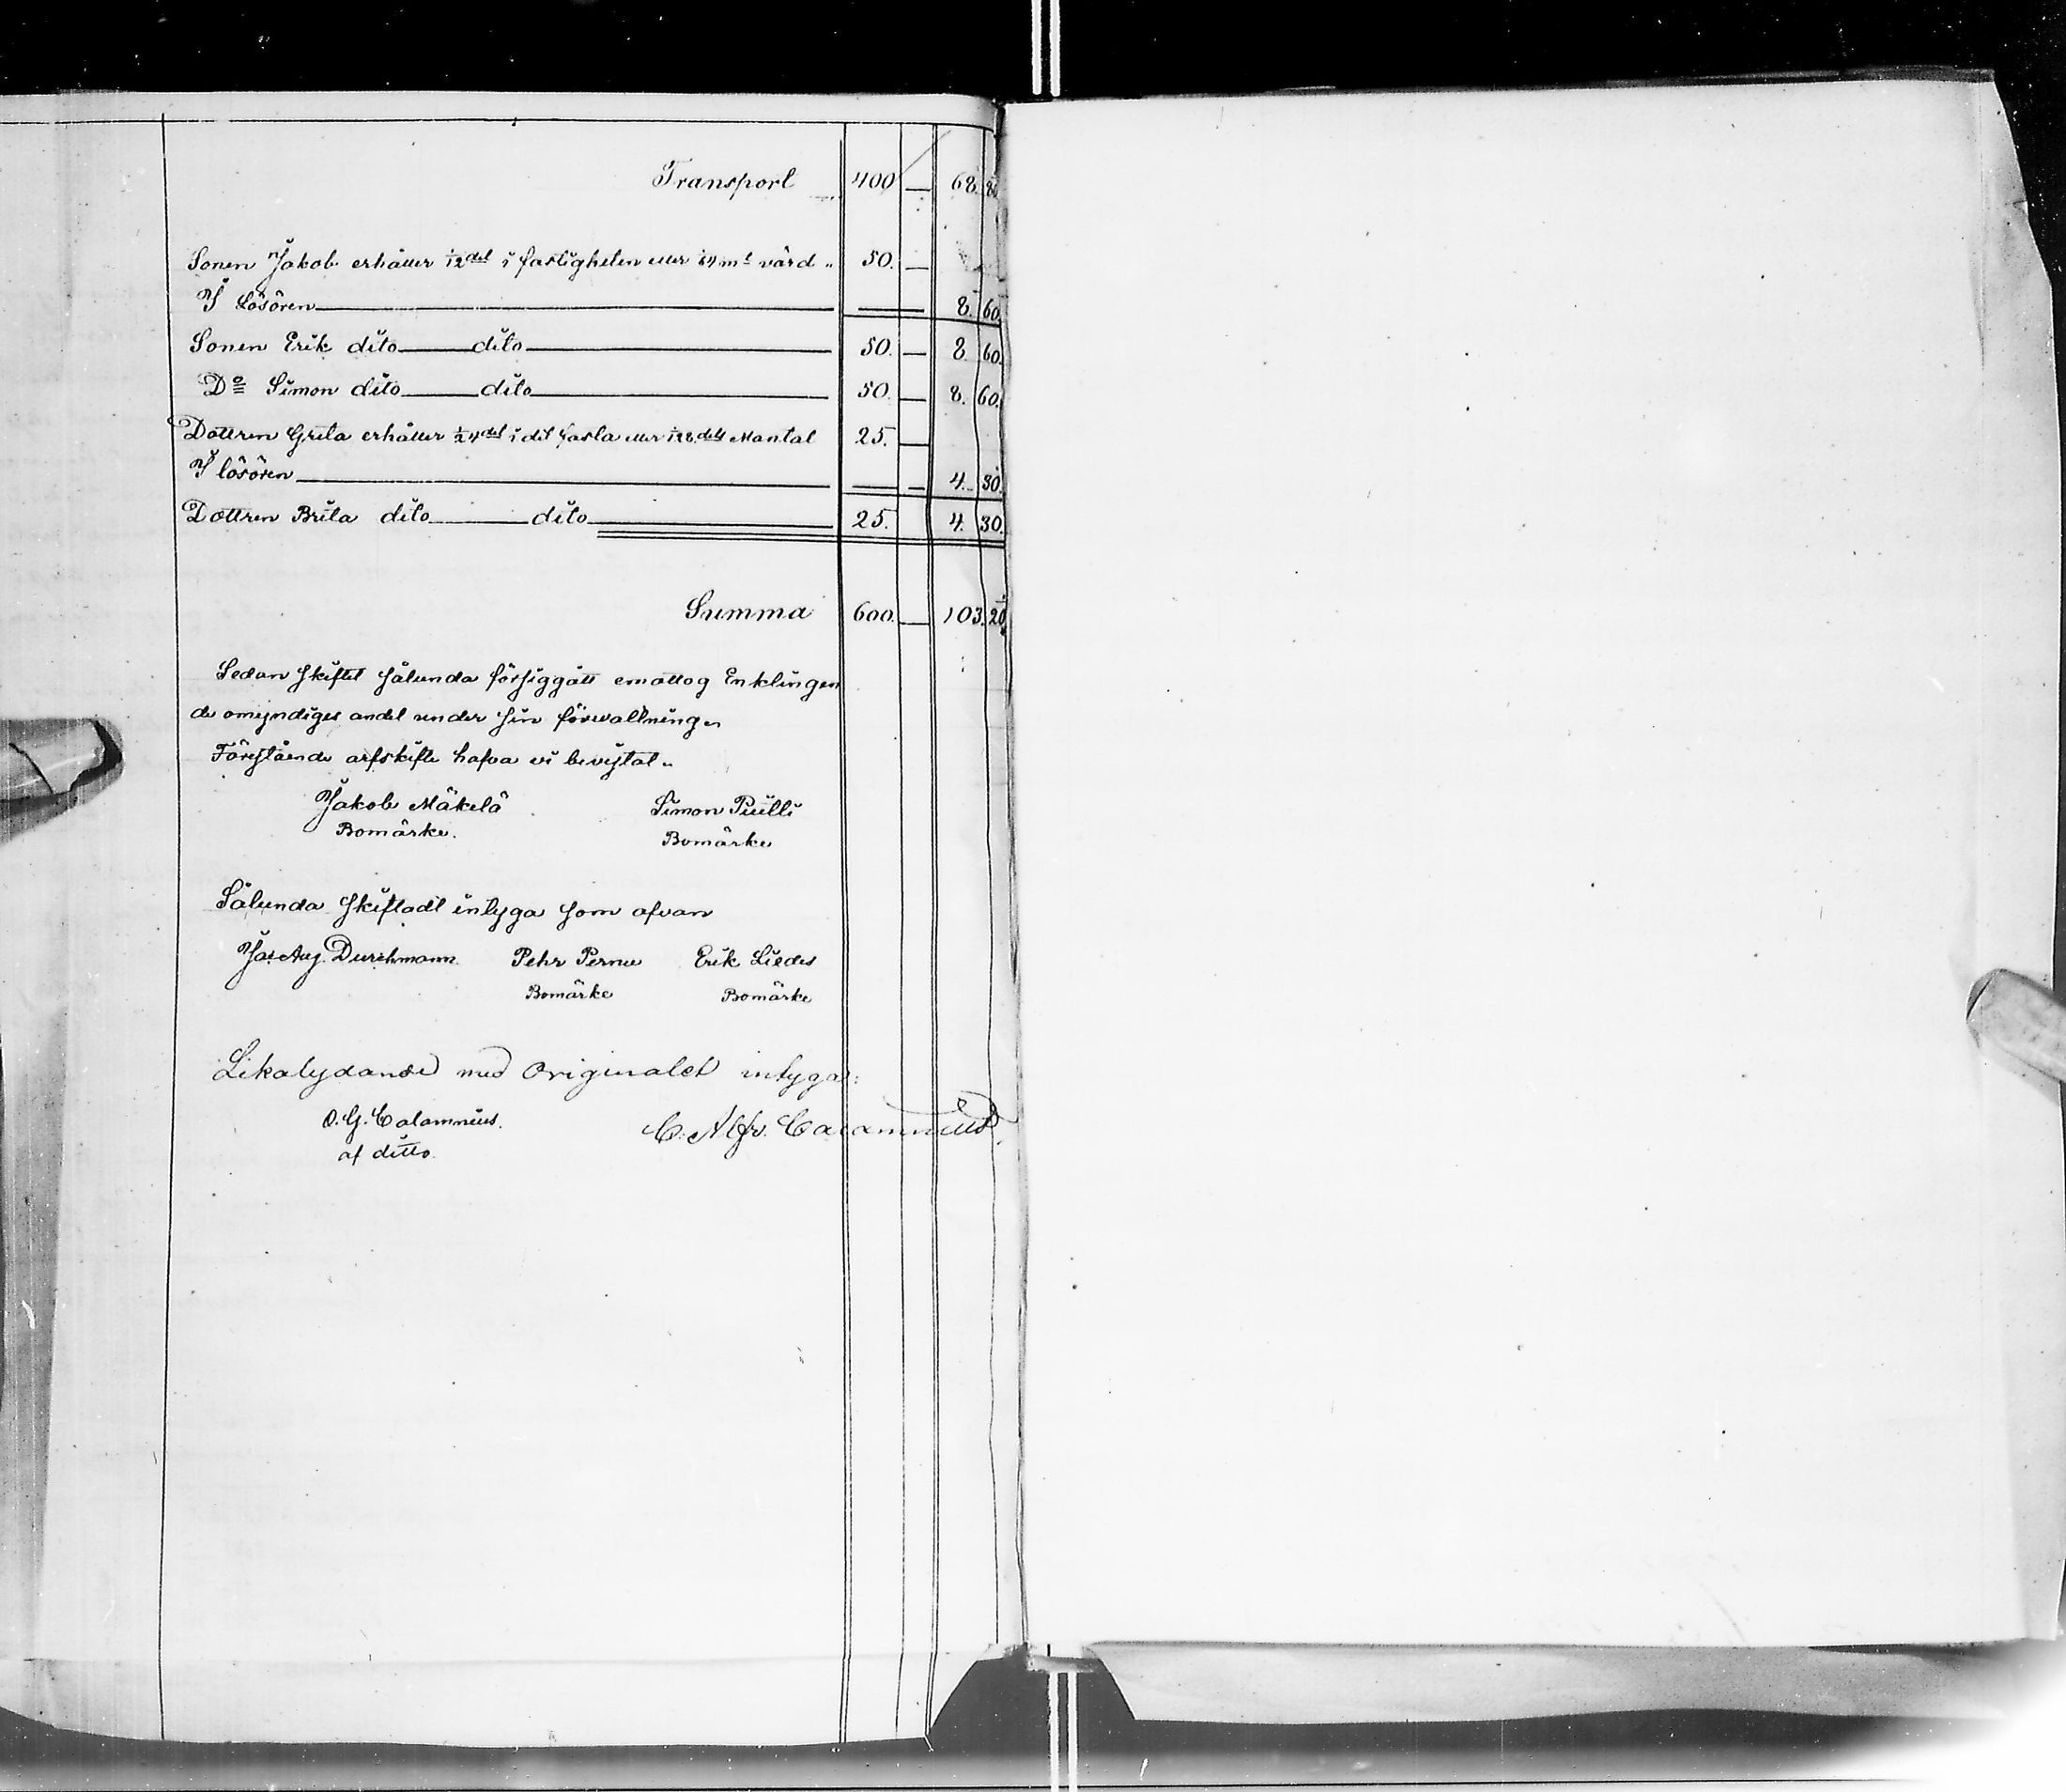 Transport 400 — 68. 80.
Sonen Jakob erhåller 1/12 del i fastigheten eller 1/64 mtl värd „ 50. —
I Lösören — 8. 60.
Sonen Erik dito dito 50. — 8. 60.
Do Simon dito dito 50. — 8. 60.
Dottren Greta erhåller 1/24 del i det fasta eller 1/128 dels Mantal 25. —
I lösören — 4. 30.
Dottren Brita dito dito 25. 4. 30.
Summa 600. — 103. 20.
Sedan skiftet sålunda försiggått emottog Enklingen
de omyndiges andel under sin förvaltning.
Förestående arfskifte hafva vi bevistat.
Jakob Mäkelä Simon Piilli
Bomärke. Bomärke
Sålunda skiftadt intyga som ofvan
Jac. Aug. Durchmann. Pehr Pernu Erik Liedes
Bomärke Bomärke
Likalydande med Originalet intygar:
O. G. Calamnius. C. Alfr. Calamnius.
af ditto.